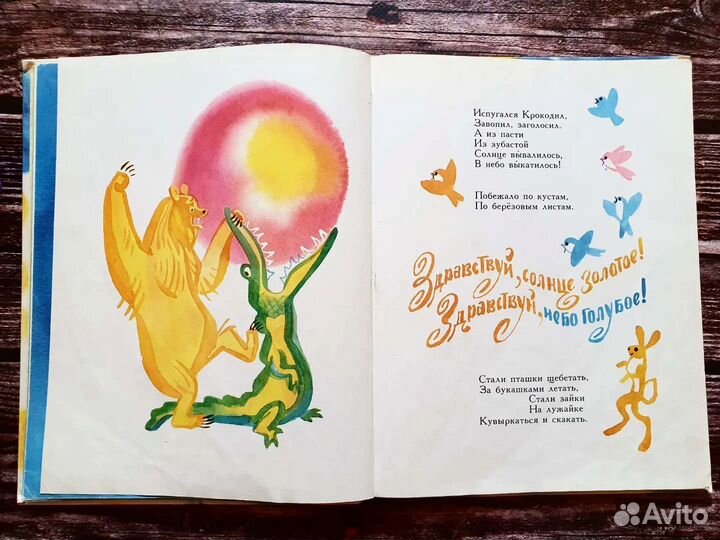 Испугался Крокодил,
Завопил, заголосил.
А из пасти
Из зубастой
Солнце вывалилось,
В небо выкатилось!
Побежало по кустам,
По берёзовым листам.
Здравствуй, солнце золотое!
Здравствуй, небо голубое!
Стали пташки щебетать,
За букашками летать,
Стали зайки
На лужайке
Кувыркаться и скакать.
Avito